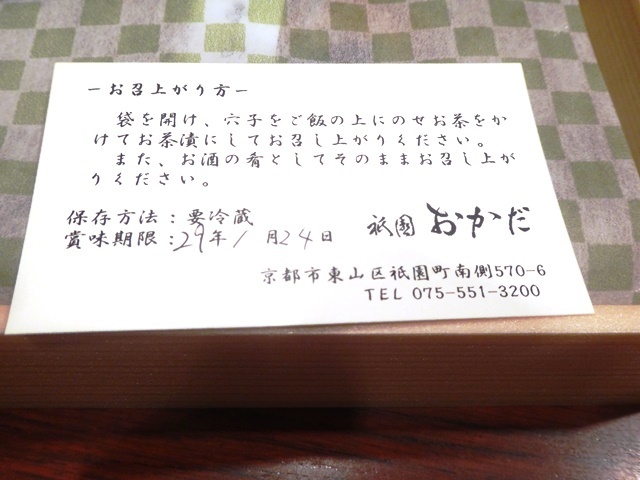 ーお召上がり方ー
袋を開け、穴子をご飯の上にのせお茶をか
けてお茶漬にしてお召し上がりください。
また、お酒の肴としてそのままお召し上が
りください。
保存方法：要冷蔵
賞味期限：29年1月24日
祇園 おかだ
京都市東山区祇園町南側570-6
TEL 075-551-3200